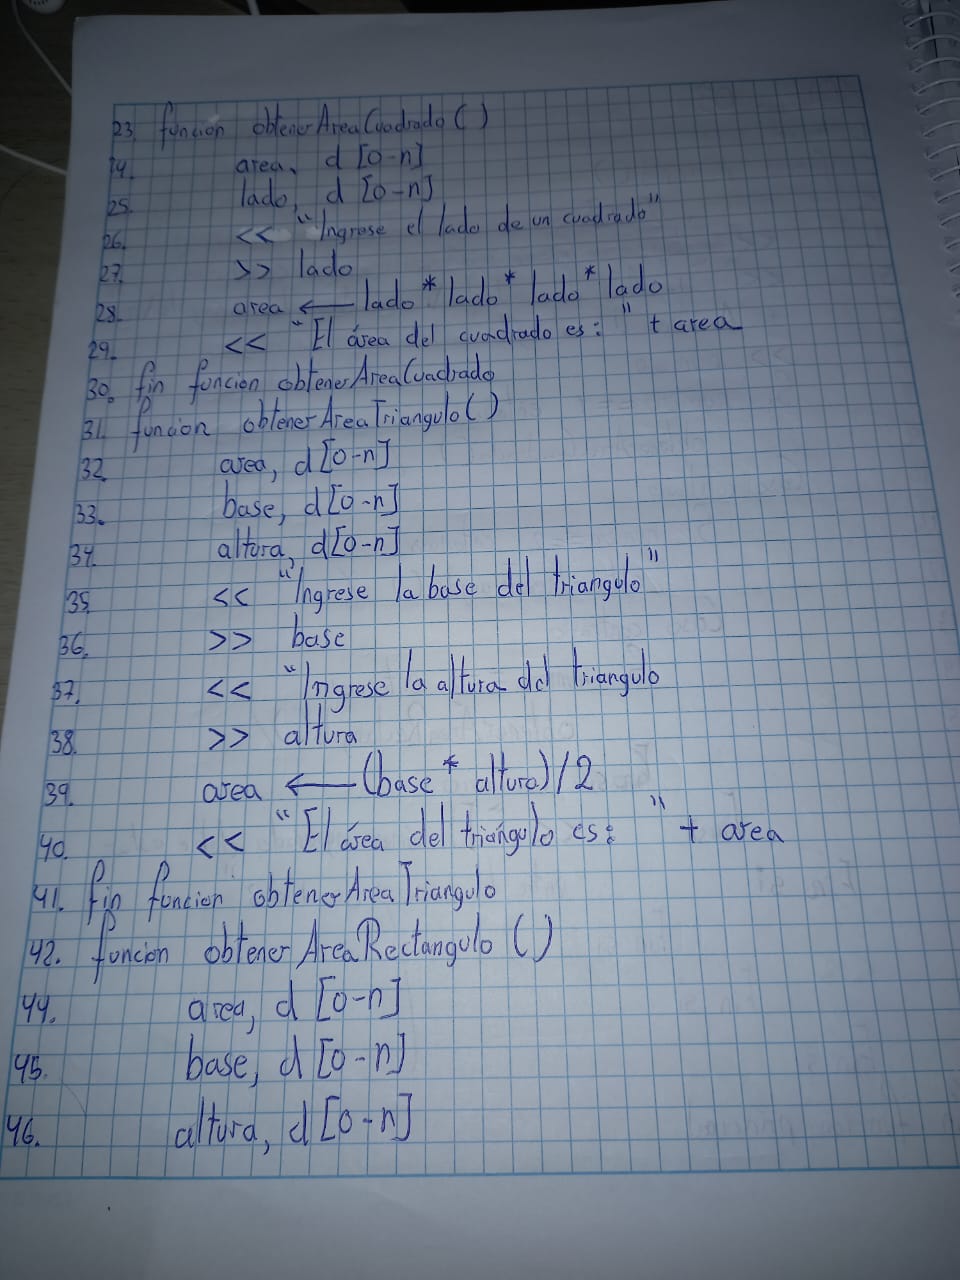 23. funcion obtenerAreaCuadrado()
24. area, d [0-n]
25. lado, d [0-n]
26. << "Ingrese el lado de un cuadrado"
27. >> lado
28. area ← lado * lado * lado * lado
29. << "El área del cuadrado es: " + area
30. fin funcion obtenerAreaCuadrado
31. funcion obtenerAreaTriangulo()
32. area, d [0-n]
33. base, d [0-n]
34. altura, d [0-n]
35. << "Ingrese la base del triangulo"
36. >> base
37. << "Ingrese la altura del triangulo
38. >> altura
39. area ← (base * altura)/2
40. << "El área del triángulo es: " + area
41. fin funcion obtenerAreaTriangulo
42. funcion obtenerAreaRectangulo()
44. area, d [0-n]
45. base, d [0-n]
46. altura, d [0-n]